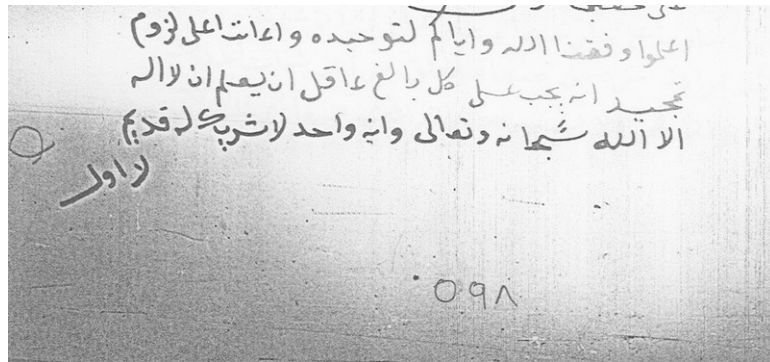 اعلموا وفقنا الله واياكم لتوحيده واعاننا على لزوم
تمجيده انه يجب على كل بالغ عاقل ان يعلم ان لا اله
الا الله سبحانه وتعالى وانه واحد لا شريك له قديم
لا اول
٥٩٨